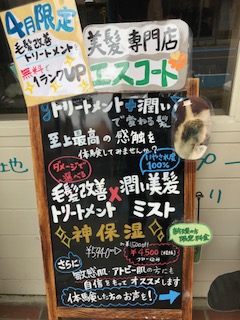 4月限定
毛髪改善
トリートメント
無料でランクUP
美髪専門店
エスコート
トリートメント≠潤い
で愛される髪
至上最高の感触を
体験してみませんか?
ダメージで
選べる
いやされ度
100%
毛髪改善×潤い美髪
トリートメント ミスト
神保湿
¥5940→
¥4,500(税抜)
さらに
敏感肌・アトピー肌の方にも
自信をもってオススメします
体験した方のお声も!